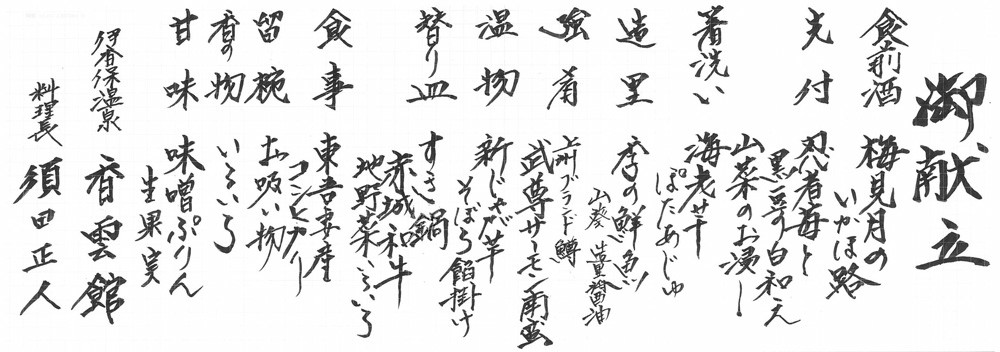 御献立
食前酒
梅見月の
いかほ路
先付
忍者海と
黒豆の白和え
山菜のお浸し
箸洗い
海老芋
ぽたあじゅ
造里
季の鮮魚
山葵 造里醤油
強肴
上州ブランド鱒
武尊サーモン
温物
新じゃが芋
そぼろ餡掛け
替り皿
すき鍋
赤城和牛
地野菜いろいろ
食事
東吾妻産
コシヒカリ
留椀
お吸い物
香の物
いろいろ
甘味
味噌ぷりん
生果実
伊香保温泉
香雲館
料理長
須田正人